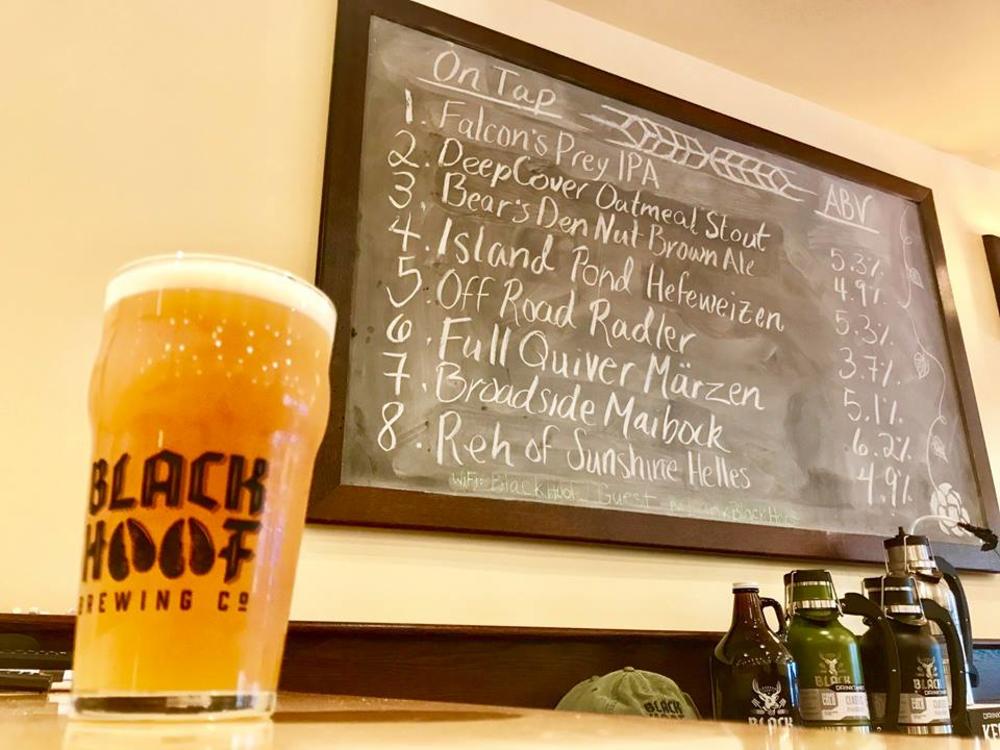 On Tap
ABV
1. Falcon's Prey IPA
2. Deep Cover Oatmeal Stout 5.3%
3. Bear's Den Nut Brown Ale 4.9%
4. Island Pond Hefeweizen 5.3%
5. Off Road Radler 3.7%
6. Full Quiver Märzen 5.1%
7. Broadside Maibock 6.2%
8. Reh of Sunshine Helles 4.9%
WiFi: BlackHoof_Guest
BLACK
HOOF
BREWING Cº
BLACK
HOOF
BLACK
BLACK
BLACK